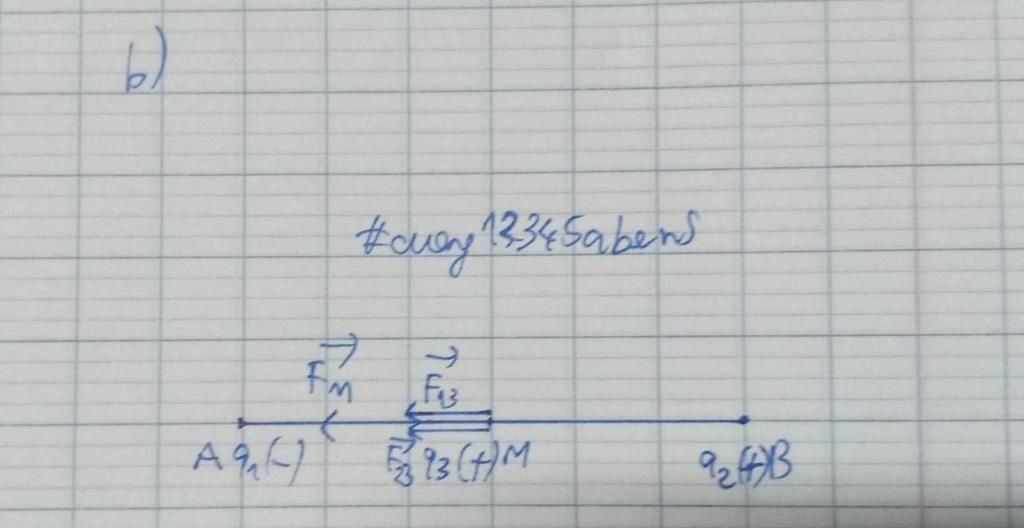 b)
#duong12345abends
F_M F_13
A q_1(-) F_23 q_3(+) M q_2(+) B